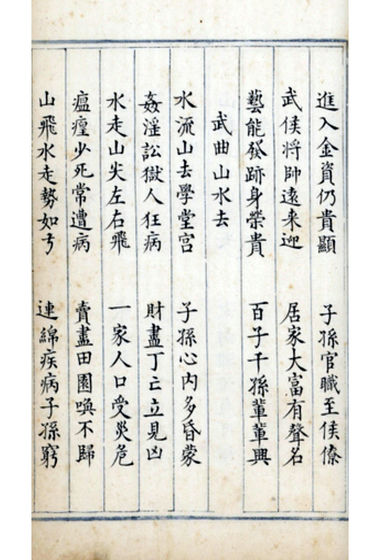 進入金資仍貴顯　子孫官職至侯僚
武侯將帥遠来迎　居家大富有聲名
藝能發跡身榮貴　百子千孫軰軰興
武曲山水去
水流山去學堂宫　子孫心内多昏蒙
姦淫訟獄人狂病　財盡丁亡立見凶
水走山尖左右飛　一家人口受災危
瘟㾮少死常遭病　賣盡田園喚不歸
山飛水走勢如　連綿疾病子孫窮